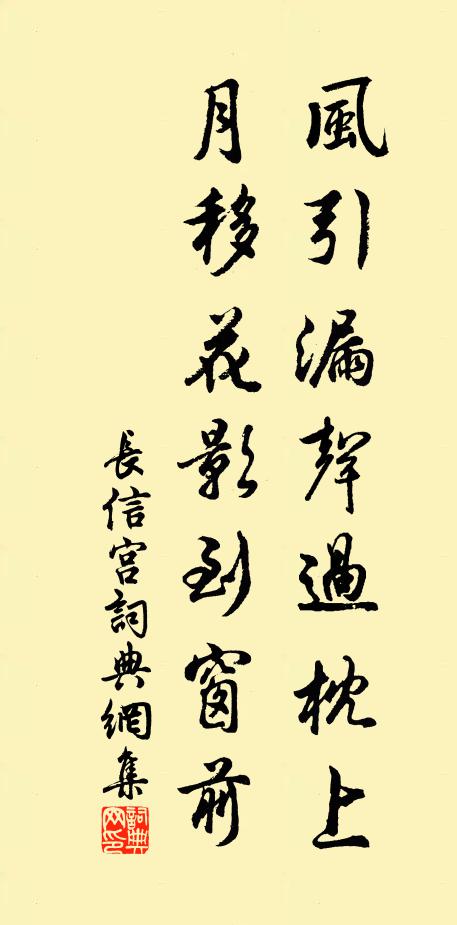 風引漏聲過枕上
月移花影到窗前
長信宮詞典網集
詞典網印